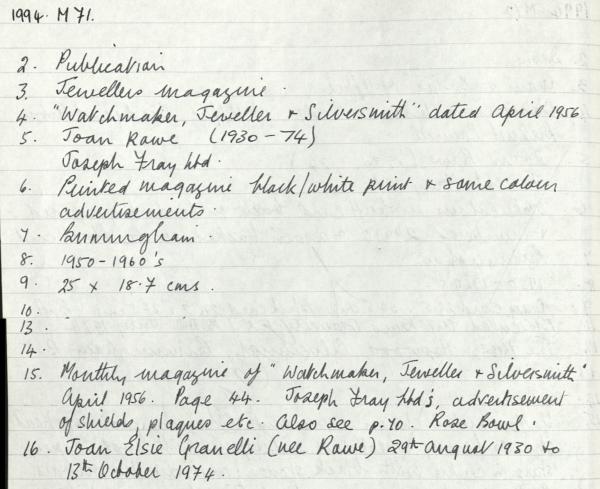 1994. M71.
2. Publication
3. Jewellers magazine.
4. "Watchmaker, Jeweller + Silversmith" dated April 1956
5. Joan Rowe (1930-74)
Joseph Fray Ltd.
6. Printed magazine black/white print + some colour
advertisements.
7. Birmingham.
8. 1950-1960's
9. 25 x 18.7 cms.
10.
13.
14.
15. Monthly magazine of "Watchmaker, Jeweller + Silversmith"
April 1956. Page 44. Joseph Fray Ltd's, advertisement
of shields, plaques etc. Also see p.40. Rose Bowl.
16. Joan Elsie Granelli (nee Rowe) 29th August 1930 to
13th October 1974.